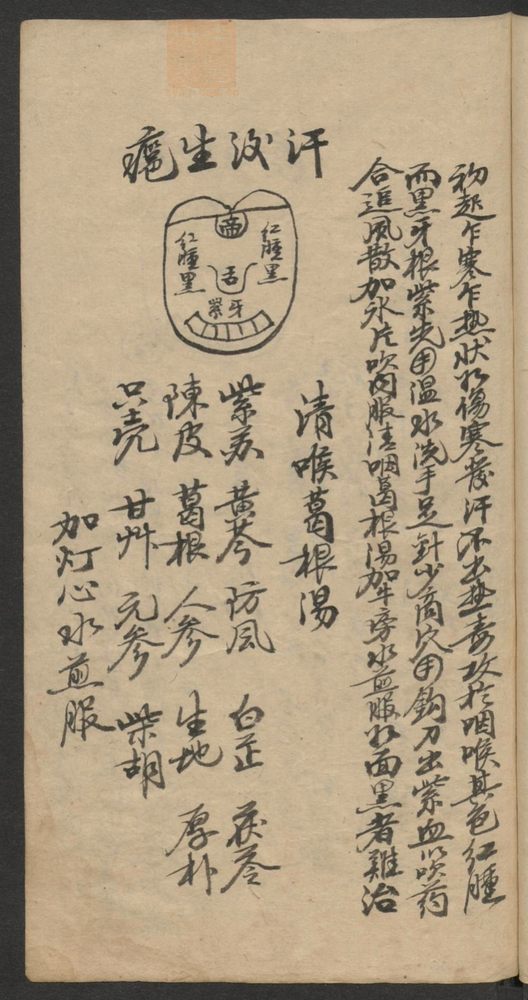 初起乍寒乍热状如傷寒發汗不出热毒攻於咽喉其色红腫
而黑牙根紫先用温水洗手足針少商穴用鈎刀出紫血吹药
合追風散加氷片吹内服清咽葛根湯加牛旁水煎服如面黑者難治
汗后生瘡
帝
红腫黑
红腫黑
舌
牙
紫
清喉葛根湯
紫苏 黄芩 防風 白芷 茯苓
陳皮 葛根 人参 生地 厚朴
只壳 甘艸 元参 柴胡
加灯心水煎服